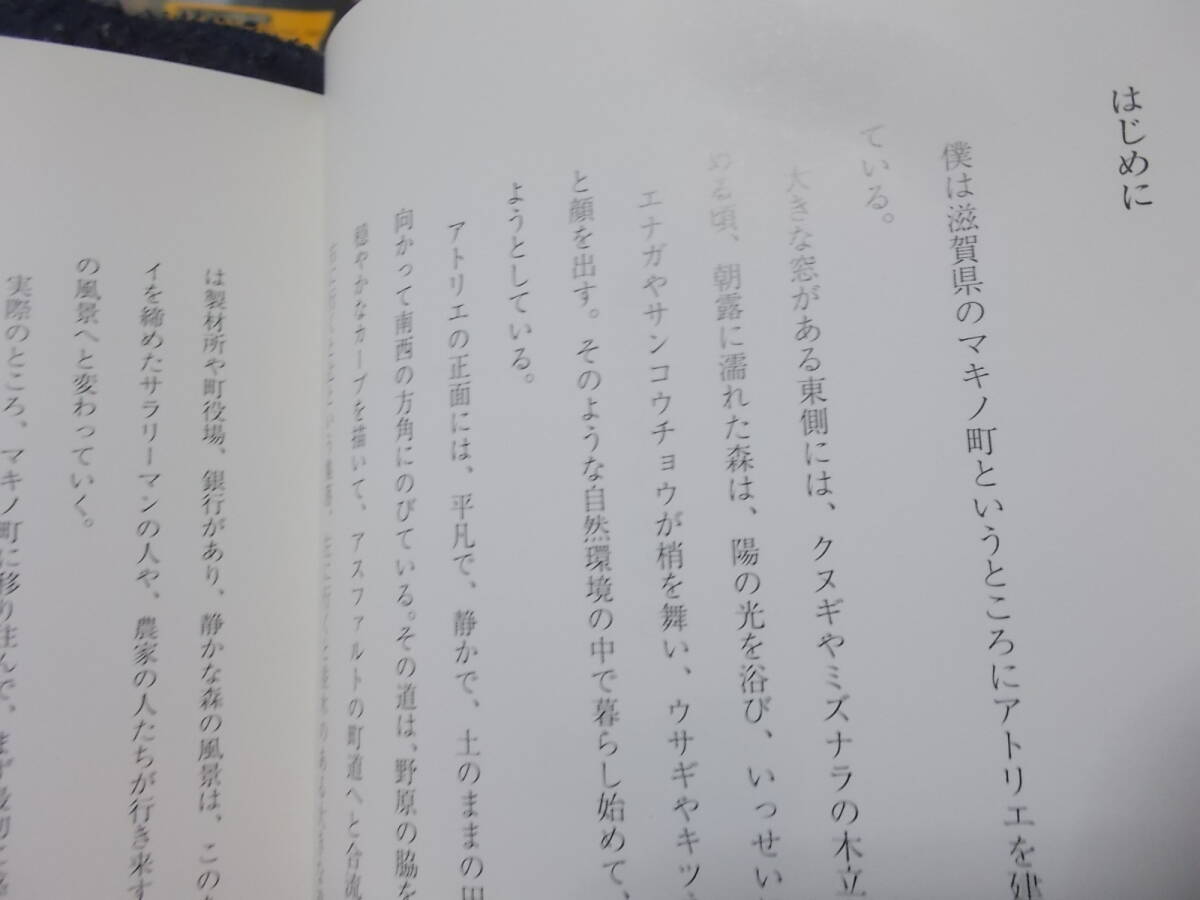 はじめに
僕は滋賀県のマキノ町というところにアトリエを建
ている。
大きな窓がある東側には、クヌギやミズナラの木立
める頃、朝露に濡れた森は、陽の光を浴び、いっせい
エナガやサンコウチョウが梢を舞い、ウサギやキツ
と顔を出す。そのような自然環境の中で暮らし始めて、
ようとしている。
アトリエの正面には、平凡で、静かで、土のままの田
向かって南西の方角にのびている。その道は、野原の脇を
穏やかなカーブを描いて、アスファルトの町道へと合流
は製材所や町役場、銀行があり、静かな森の風景は、この
イを締めたサラリーマンの人や、農家の人たちが行き来す
の風景へと変わっていく。
実際のところ、マキノ町に移り住んで、まず最初に